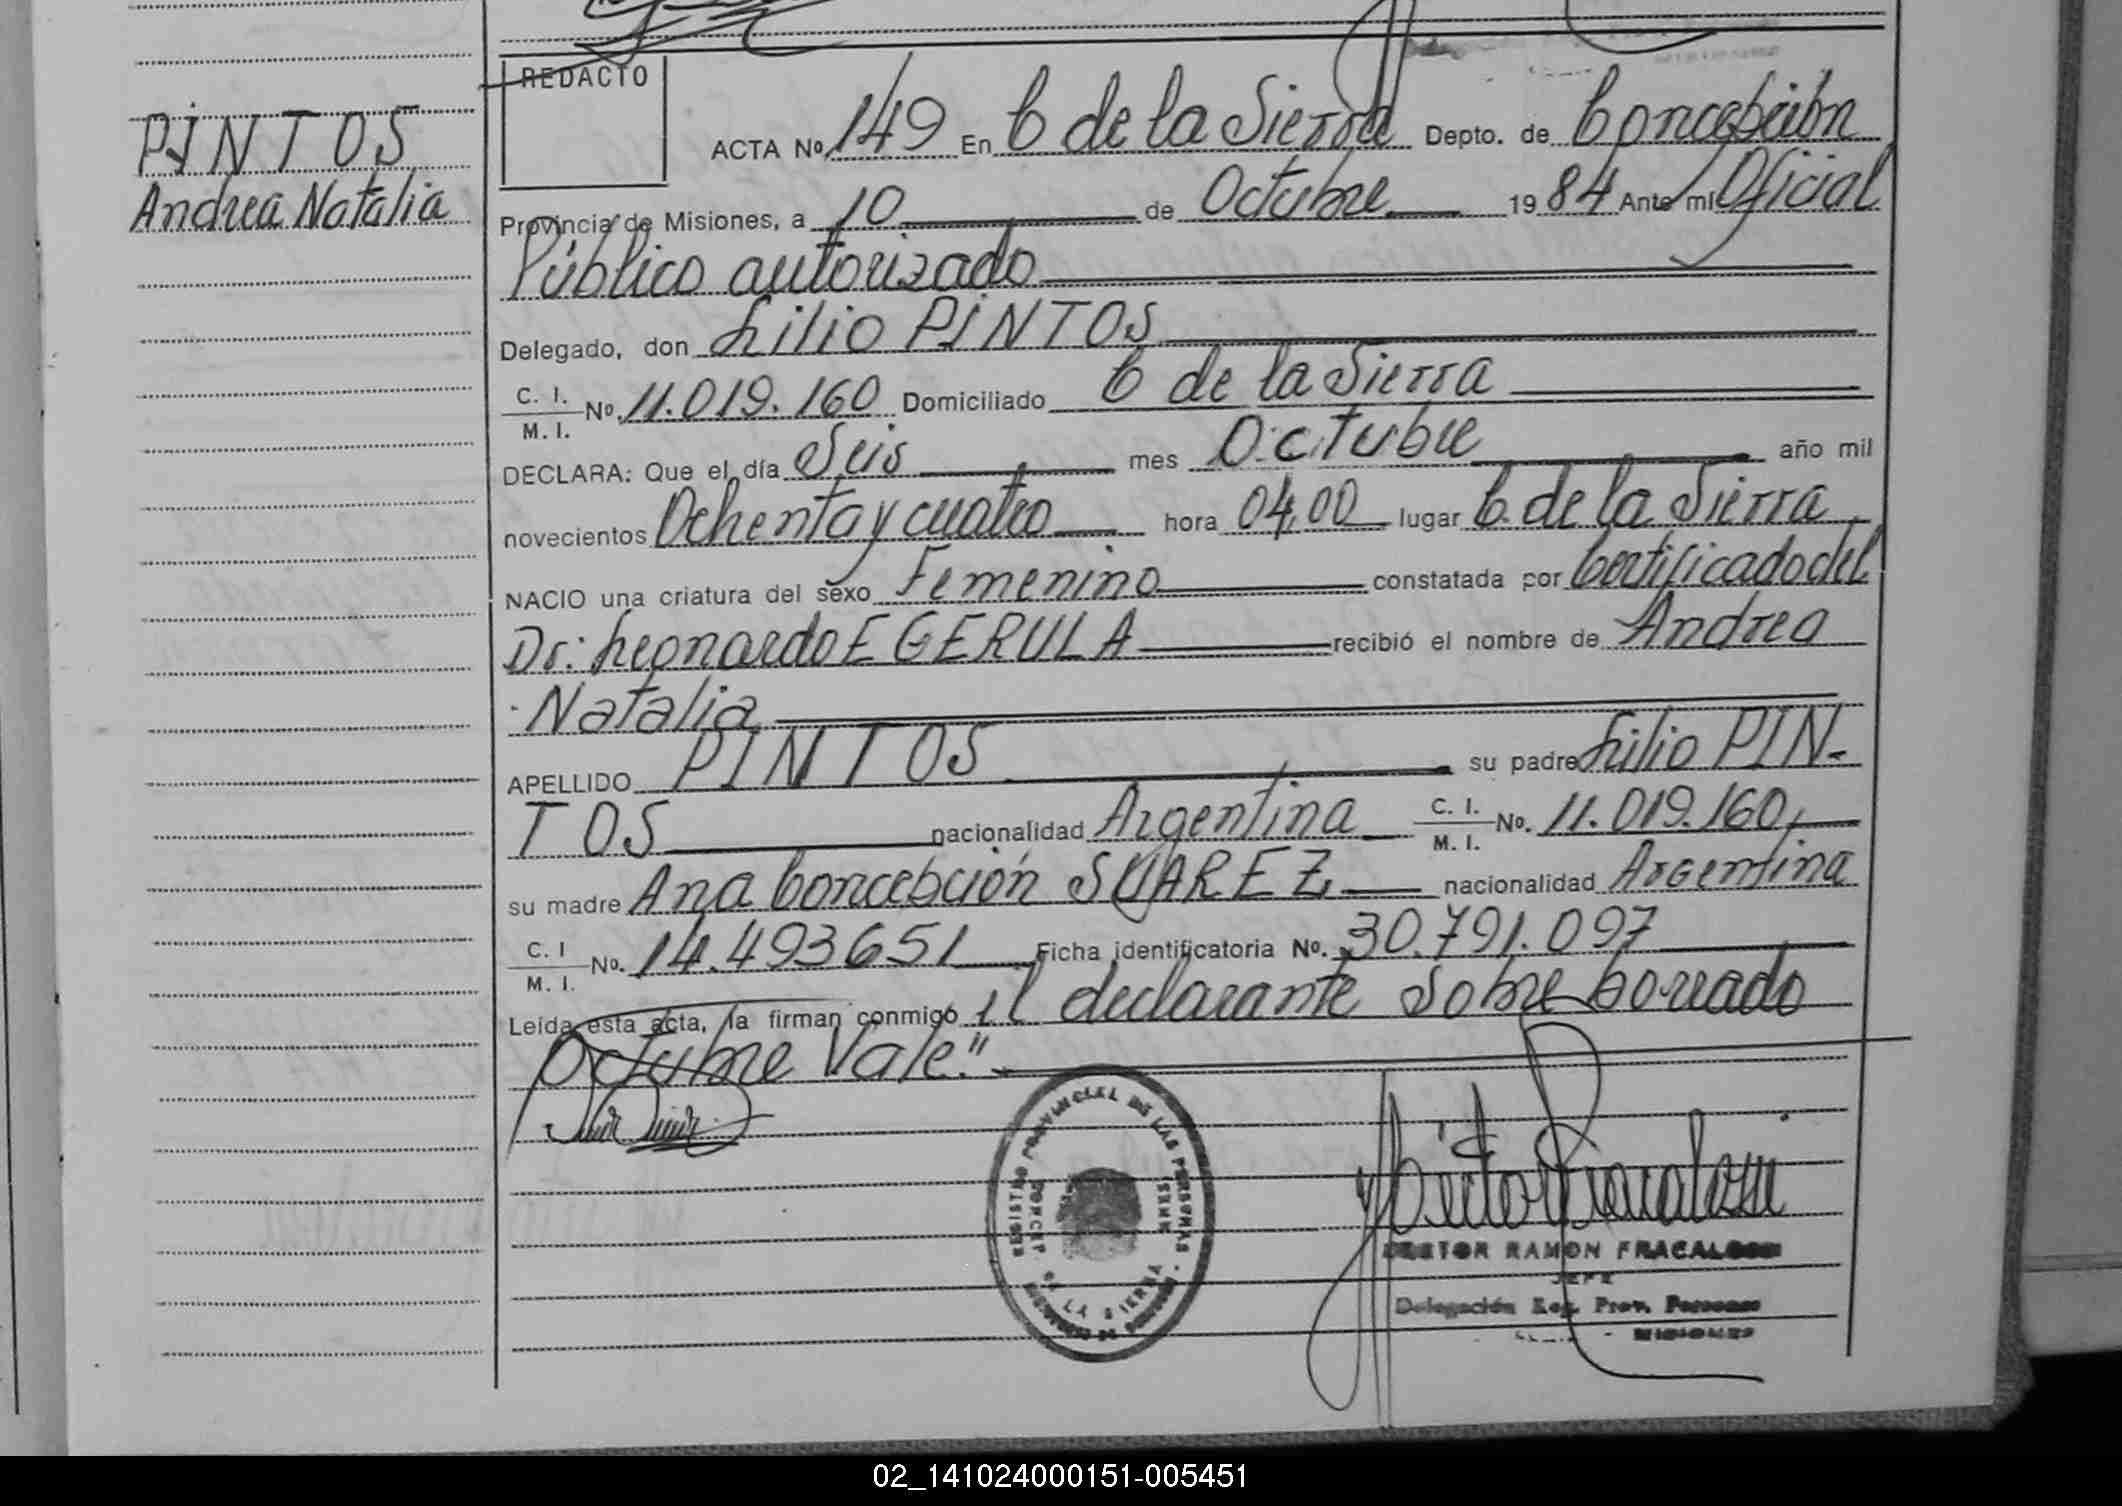 REDACTO
PINTOS
Andrea Natalia
ACTA Nº 149 En C de la Sierra Depto. de Concepción
Provincia de Misiones, a 10 de Octubre 1984 Ante mi Oficial
Público autorizado
Delegado, don Lilio PINTOS
C. I.
M. I. Nº 11.019.160 Domiciliado C de la Sierra
DECLARA: Que el día Seis mes Octubre año mil
novecientos Ochenta y cuatro hora 04,00 lugar C. de la Sierra
NACIO una criatura del sexo Femenino constatada por Certificado del
Dr: Leonardo E GERULA recibió el nombre de Andrea
Natalia
APELLIDO PINTOS su padre Lilio PIN-
TOS nacionalidad Argentina C. I. M. I. No. 11.019.160,
su madre Ana Concepción SUAREZ, nacionalidad Argentina
C. I M. I. No. 14.493651 Ficha identificatoria No. 30.791.097
Leída esta acta, la firman conmigo el declarante Sobre borrado
Octubre Vale."
REGISTRO PROVINCIAL DE LAS PERSONAS
DE LA SIERRA
HECTOR RAMON FRACALOSSI
JEFE
Delegación Reg. Prov. Personas
MISIONES
02_141024000151-005451